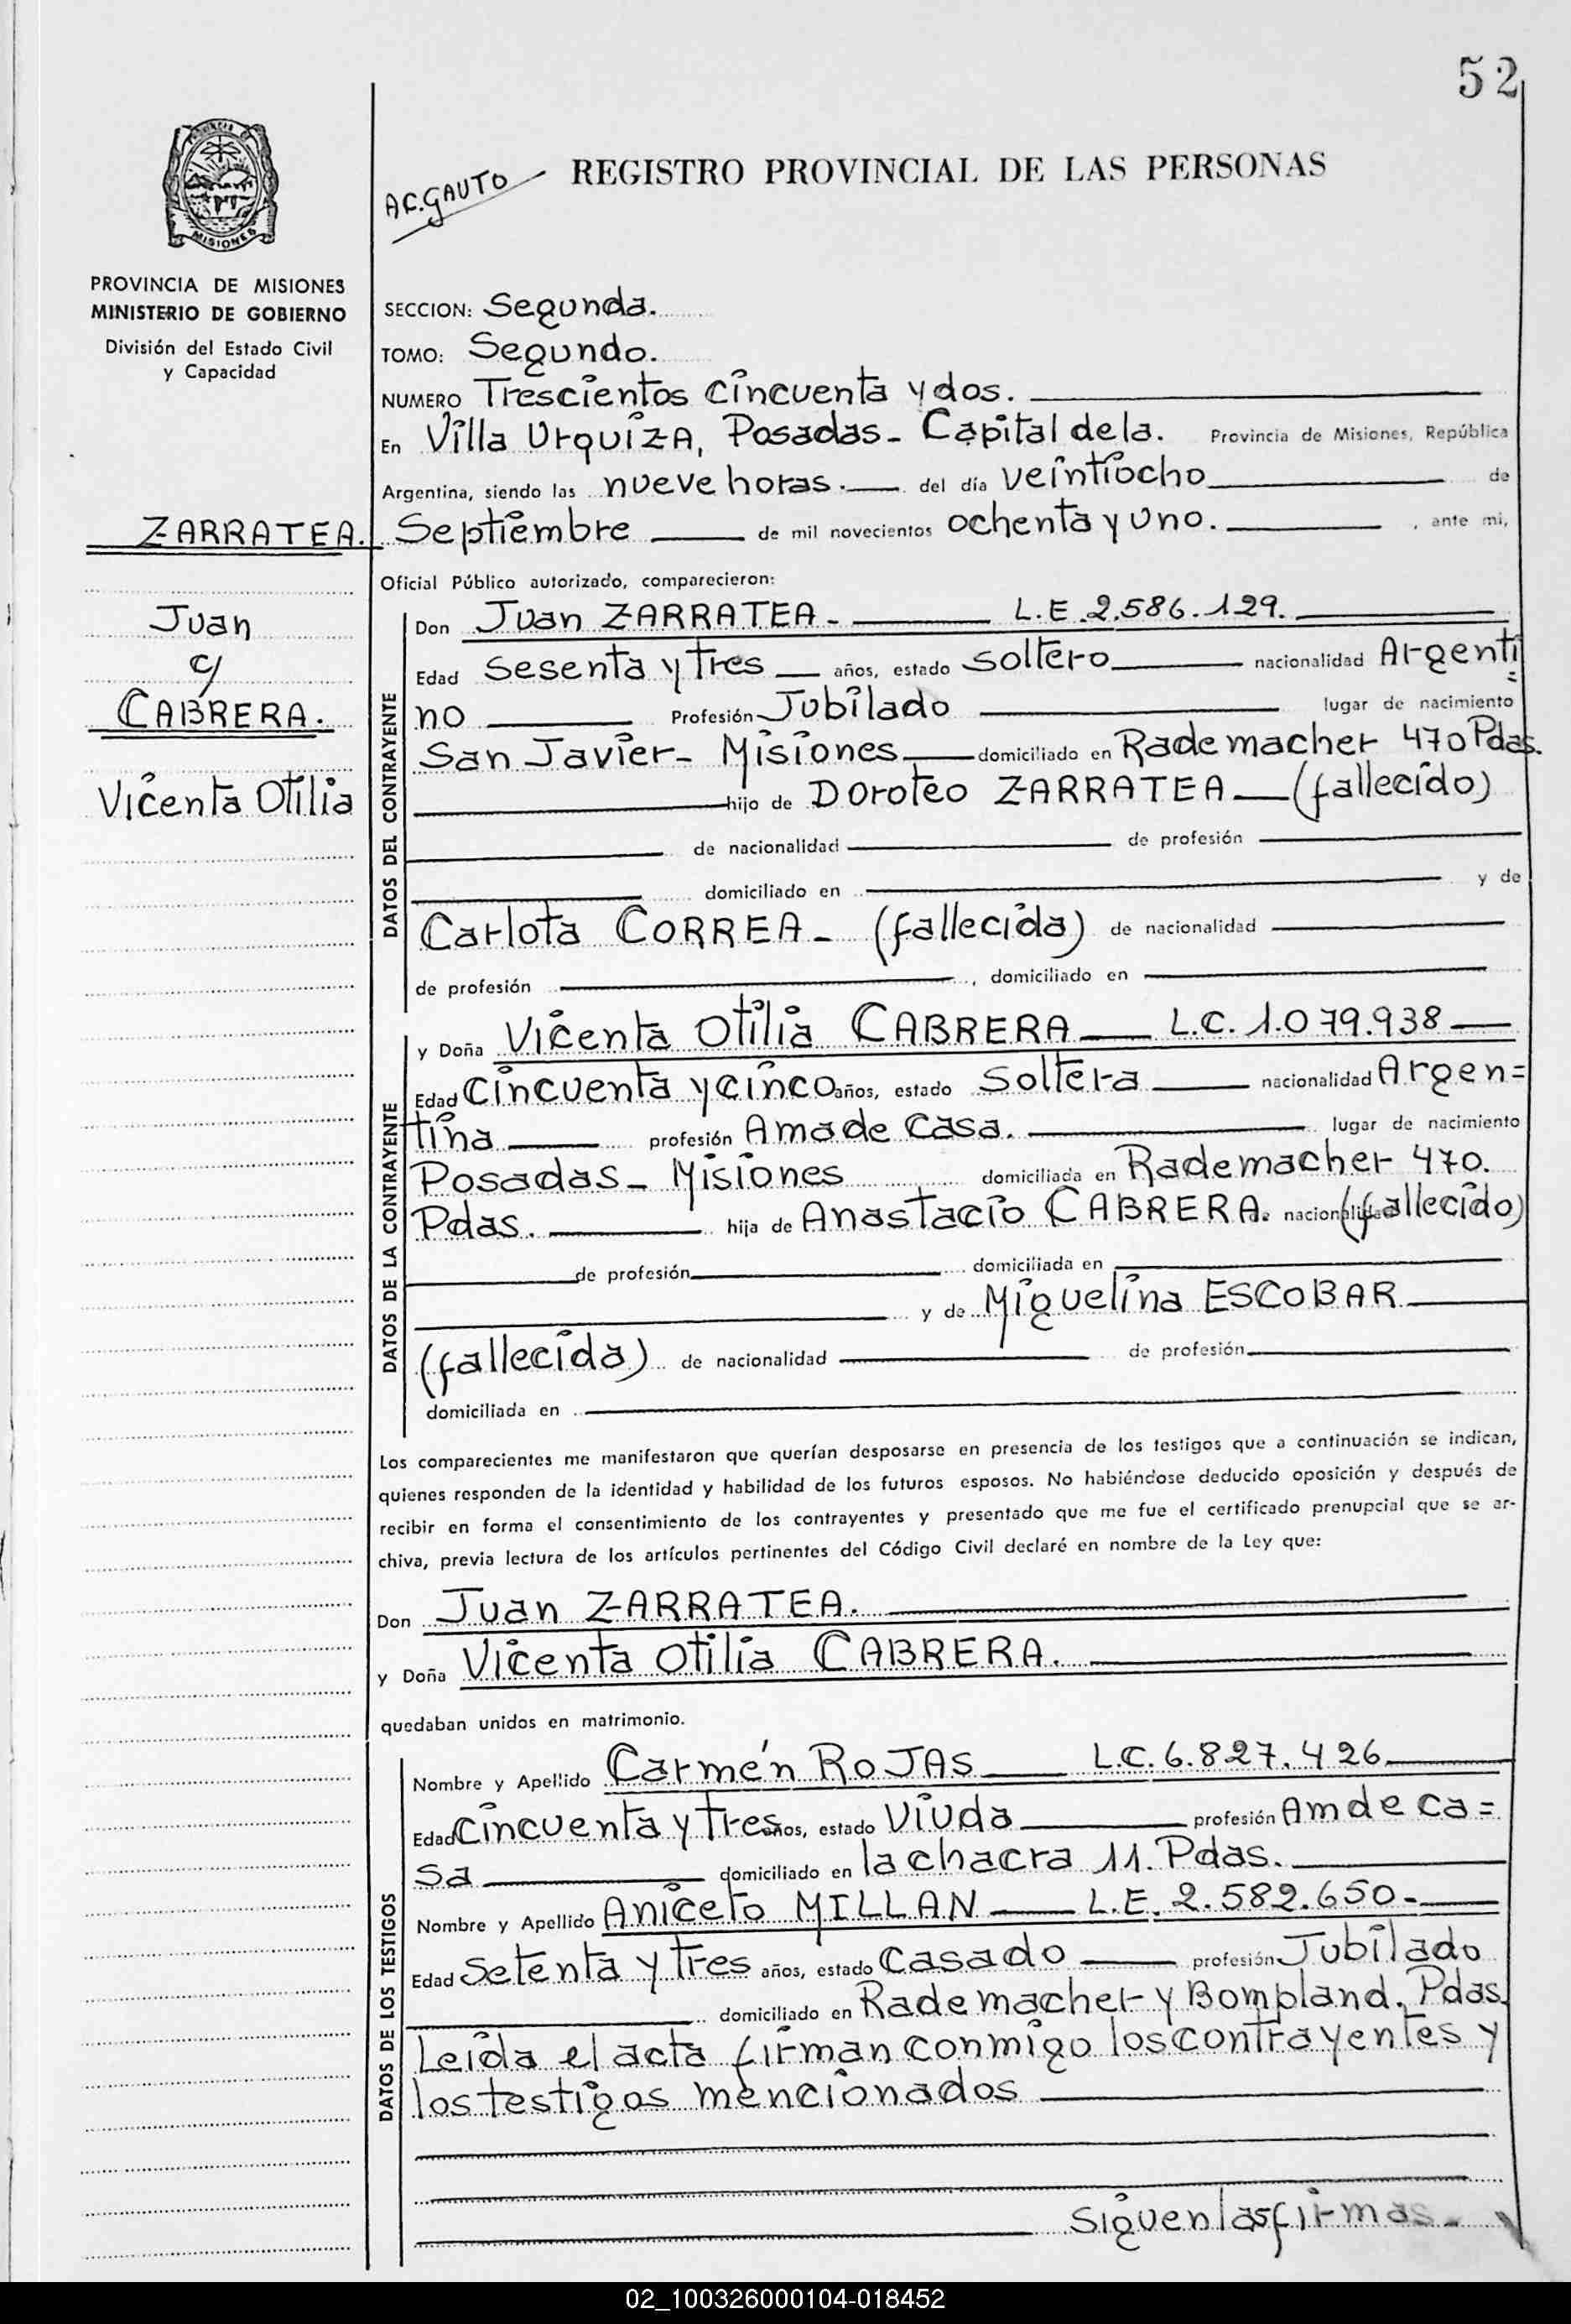 52
AC.GAUTO
REGISTRO PROVINCIAL DE LAS PERSONAS
MISIONES
PROVINCIA DE MISIONES
MINISTERIO DE GOBIERNO
División del Estado Civil
y Capacidad
ZARRATEA.
Juan
c/
CABRERA.
Vicenta Otilia
SECCION: Segunda.
TOMO: Segundo.
NUMERO Trescientos cincuenta y dos.
En Villa Urquiza, Posadas - Capital de la. Provincia de Misiones, República
Argentina, siendo las nueve horas. del día veintiocho de
Septiembre de mil novecientos ochenta y uno. , ante mi,
Oficial Público autorizado, comparecieron:
DATOS DEL CONTRAYENTE
Don Juan ZARRATEA - L.E. 2.586.129.
Edad Sesenta y Tres años, estado soltero nacionalidad Argenti=
no Profesión Jubilado lugar de nacimiento
San Javier - Misiones domiciliado en Rademacher 470 Pdas.
hijo de Doroteo ZARRATEA (fallecido)
de nacionalidad de profesión
domiciliado en y de
Carlota CORREA - (fallecida) de nacionalidad
de profesión , domiciliado en
DATOS DE LA CONTRAYENTE
y Doña Vicenta Otilia CABRERA L.C. 1.079.938
Edad Cincuenta y cinco años, estado soltera nacionalidad Argen=
tina profesión Ama de casa. lugar de nacimiento
Posadas - Misiones domiciliada en Rademacher 470.
Pdas. hija de Anastacio CABRERA. de nacionalidad (fallecido)
de profesión domiciliada en
y de Miguelina ESCOBAR
(fallecida) de nacionalidad de profesión
domiciliada en
Los comparecientes me manifestaron que querían desposarse en presencia de los testigos que a continuación se indican,
quienes responden de la identidad y habilidad de los futuros esposos. No habiéndose deducido oposición y después de
recibir en forma el consentimiento de los contrayentes y presentado que me fue el certificado prenupcial que se ar-
chiva, previa lectura de los artículos pertinentes del Código Civil declaré en nombre de la Ley que:
Don Juan ZARRATEA.
y Doña Vicenta Otilia CABRERA.
quedaban unidos en matrimonio.
DATOS DE LOS TESTIGOS
Nombre y Apellido Carmén ROJAS L.C. 6.827.426
Edad Cincuenta y Tres años, estado Viuda profesión Am de ca=
sa domiciliado en la chacra 11. Pdas.
Nombre y Apellido Aniceto MILLAN L.E. 2.582.650-
Edad Setenta y Tres años, estado casado profesión Jubilado
domiciliado en Rademacher y Bompland. Pdas.
Leida el acta firman conmigo los contrayentes y
los testigos mencionados
Siguen las firmas-
02_100326000104-018452